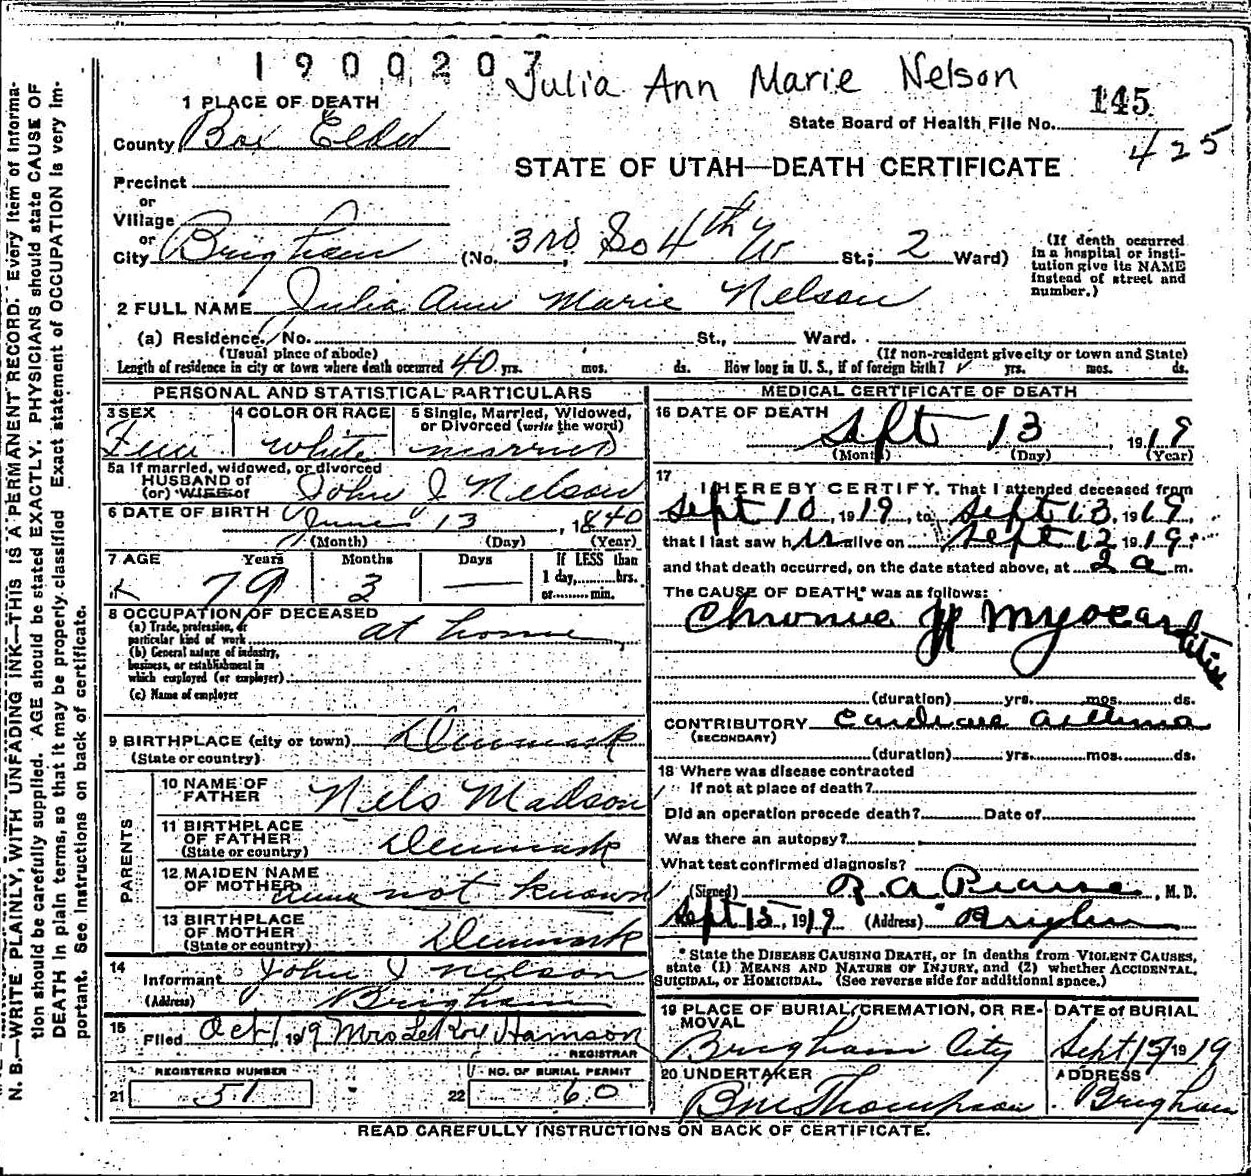 1900207
Julia Ann Marie Nelson
145
State Board of Health File No.
425
1 PLACE OF DEATH
County Box Elder
STATE OF UTAH—DEATH CERTIFICATE
Precinct
or
Village
or
City Brigham (No. 3rd So 4th W St.; 2 Ward)
(If death occurred in a hospital or institution give its NAME instead of street and number.)
2 FULL NAME Julia Ann Marie Nelson
(a) Residence. No. St., Ward.
(Usual place of abode) (If non-resident give city or town and State)
Length of residence in city or town where death occurred 40 yrs. mos. ds. How long in U. S., if of foreign birth? yrs. mos. ds.
PERSONAL AND STATISTICAL PARTICULARS
3 SEX 4 COLOR OR RACE 5 Single, Married, Widowed, or Divorced (write the word)
Fem white married
5a If married, widowed, or divorced
HUSBAND of
(or) WIFE of John J Nelson
6 DATE OF BIRTH June 13, 1840
(Month) (Day) (Year)
7 AGE Years Months Days If LESS than
1 day, hrs.
or min.
79 3 —
8 OCCUPATION OF DECEASED
(a) Trade, profession, or
particular kind of work at home
(b) General nature of industry,
business, or establishment in
which employed (or employer)
(c) Name of employer
9 BIRTHPLACE (city or town) Denmark
(State or country)
PARENTS
10 NAME OF
FATHER Nels Madson
11 BIRTHPLACE
OF FATHER
(State or country) Denmark
12 MAIDEN NAME
OF MOTHER Anna not known
13 BIRTHPLACE
OF MOTHER
(State or country) Denmark
14 Informant John J Nelson
(Address) Brigham
15 Filed Oct 1, 1919 Mrs LeRoy Hamson
REGISTRAR
REGISTERED NUMBER NO. OF BURIAL PERMIT
21 51 22 60
MEDICAL CERTIFICATE OF DEATH
16 DATE OF DEATH
Sept 13, 1919
(Month) (Day) (Year)
17 I HEREBY CERTIFY, That I attended deceased from
Sept 10, 1919, to Sept 13, 1919,
that I last saw her alive on Sept 12 1919,
and that death occurred, on the date stated above, at 2 a m.
The CAUSE OF DEATH* was as follows:
Chronic Myocarditis
(duration) yrs. mos. ds.
CONTRIBUTORY Cardiac Asthma
(SECONDARY)
(duration) yrs. mos. ds.
18 Where was disease contracted
If not at place of death?
Did an operation precede death? Date of
Was there an autopsy?
What test confirmed diagnosis?
(Signed) R A Pearse, M. D.
Sept 15, 1919 (Address) Brigham
* State the DISEASE CAUSING DEATH, or in deaths from VIOLENT CAUSES,
state (1) MEANS AND NATURE OF INJURY, and (2) whether ACCIDENTAL,
SUICIDAL, or HOMICIDAL. (See reverse side for additional space.)
19 PLACE OF BURIAL, CREMATION, OR REMOVAL DATE of BURIAL
Brigham City Sept 15 1919
20 UNDERTAKER ADDRESS
Thompson Brigham
READ CAREFULLY INSTRUCTIONS ON BACK OF CERTIFICATE.
N. B.—WRITE PLAINLY, WITH UNFADING INK—THIS IS A PERMANENT RECORD. Every item of informa-
tion should be carefully supplied. AGE should be stated EXACTLY. PHYSICIANS should state CAUSE OF
DEATH in plain terms, so that it may be properly classified Exact statement of OCCUPATION is very im-
portant. See instructions on back of certificate.